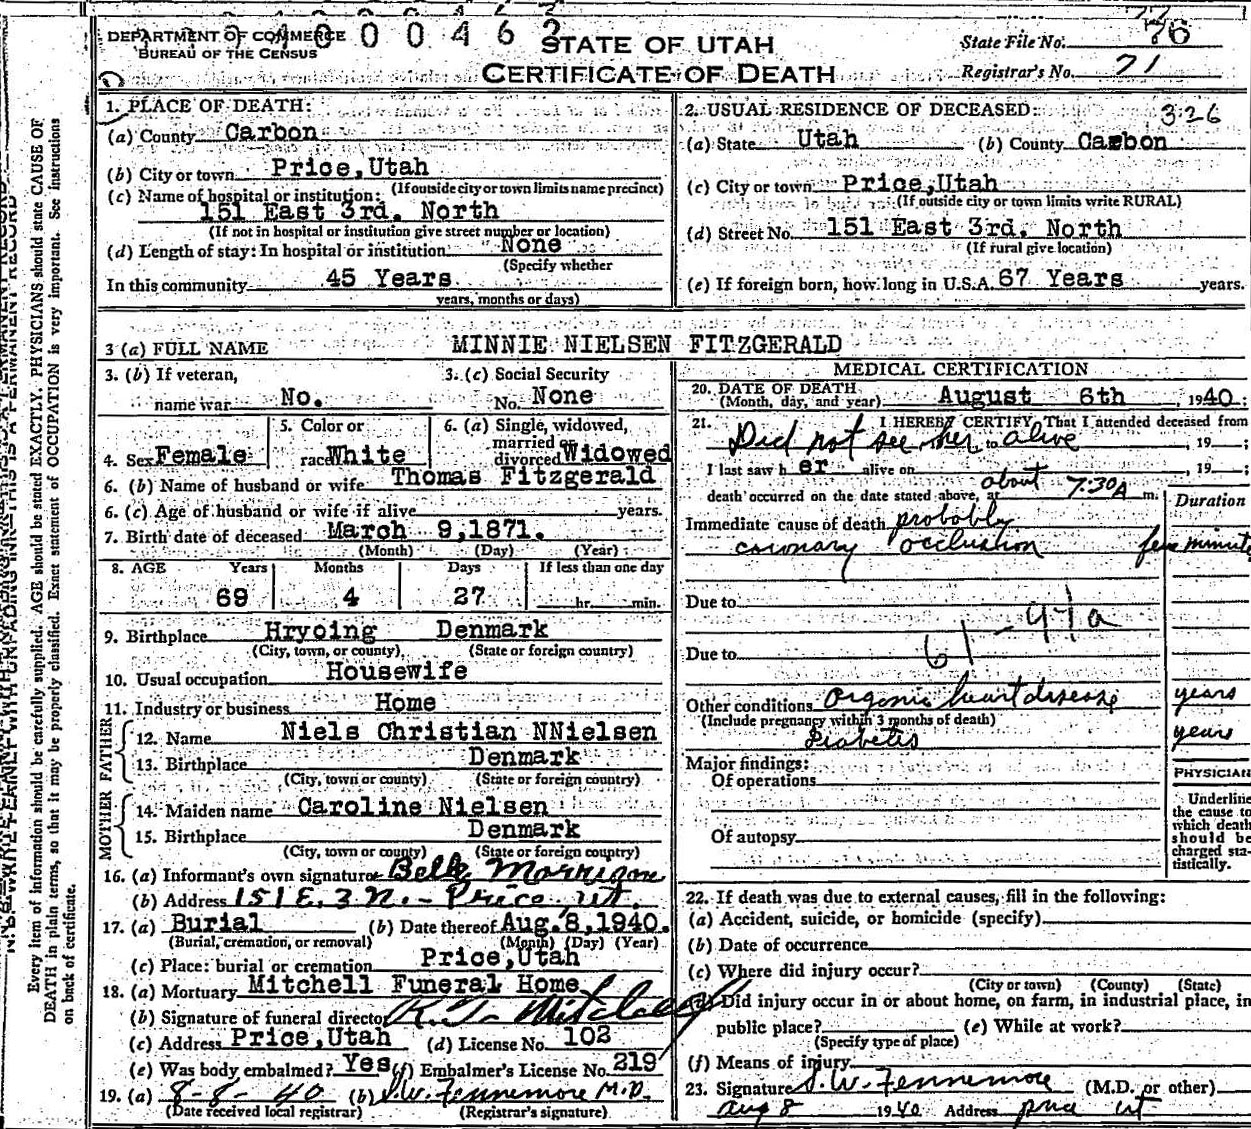 DEPARTMENT OF COMMERCE
BUREAU OF THE CENSUS
000462
STATE OF UTAH
CERTIFICATE OF DEATH
State File No. 76
Registrar's No. 71
1. PLACE OF DEATH:
(a) County Carbon
(b) City or town Price,Utah
(If outside city or town limits name precinct)
(c) Name of hospital or institution:
151 East 3rd. North
(If not in hospital or institution give street number or location)
(d) Length of stay: In hospital or institution None
(Specify whether
In this community 45 Years
years, months or days)
2. USUAL RESIDENCE OF DECEASED:
326
(a) State Utah (b) County Carbon
(c) City or town Price,Utah
(If outside city or town limits write RURAL)
(d) Street No. 151 East 3rd. North
(If rural give location)
(e) If foreign born, how long in U.S.A. 67 Years years.
3 (a) FULL NAME MINNIE NIELSEN FITZGERALD
3. (b) If veteran, name war No.
3. (c) Social Security No. None
4. Sex Female
5. Color or race White
6. (a) Single, widowed, married or divorced Widowed
6. (b) Name of husband or wife Thomas Fitzgerald
6. (c) Age of husband or wife if alive years.
7. Birth date of deceased March 9,1871.
(Month) (Day) (Year)
8. AGE Years Months Days If less than one day
69 4 27 hr. min.
9. Birthplace Hryoing Denmark
(City, town, or county) (State or foreign country)
10. Usual occupation Housewife
11. Industry or business Home
FATHER
12. Name Niels Christian NNielsen
13. Birthplace Denmark
(City, town or county) (State or foreign country)
MOTHER
14. Maiden name Caroline Nielsen
15. Birthplace Denmark
(City, town or county) (State or foreign country)
16. (a) Informant's own signature Belle Morrison
(b) Address 151 E. 3 N. - Price, Ut.
17. (a) Burial (b) Date thereof Aug.8,1940.
(Burial, cremation, or removal) (Month) (Day) (Year)
(c) Place: burial or cremation Price,Utah
18. (a) Mortuary Mitchell Funeral Home
(b) Signature of funeral director Mitchell
(c) Address Price,Utah (d) License No. 102
(e) Was body embalmed? Yes (f) Embalmer's License No. 219
19. (a) 8-8-40 (b) Fennemore M.D.
(Date received local registrar) (Registrar's signature)
MEDICAL CERTIFICATION
20. DATE OF DEATH
(Month, day, and year) August 6th, 1940;
21. I HEREBY CERTIFY, That I attended deceased from
Did not see her to alive, 19 ;
I last saw her alive on , 19 ;
death occurred on the date stated above, at about 7:30A m.
Duration
Immediate cause of death probably
coronary occlusion few minutes
Due to
61-94a
Due to
Other conditions Organic heart disease years
(Include pregnancy within 3 months of death)
Diabetis years
Major findings:
Of operations
Of autopsy
PHYSICIAN
Underline
the cause to
which death
should be
charged sta-
tistically.
22. If death was due to external causes, fill in the following:
(a) Accident, suicide, or homicide (specify)
(b) Date of occurrence
(c) Where did injury occur?
(City or town) (County) (State)
Did injury occur in or about home, on farm, in industrial place, in
public place? (e) While at work?
(Specify type of place)
(f) Means of injury
23. Signature Fennemore (M.D. or other)
Aug 8 1940 Address Price Ut
Every item of information should be carefully supplied. AGE should be stated EXACTLY. PHYSICIANS should state CAUSE OF
DEATH in plain terms, so that it may be properly classified. Exact statement of OCCUPATION is very important. See instructions
on back of certificate.